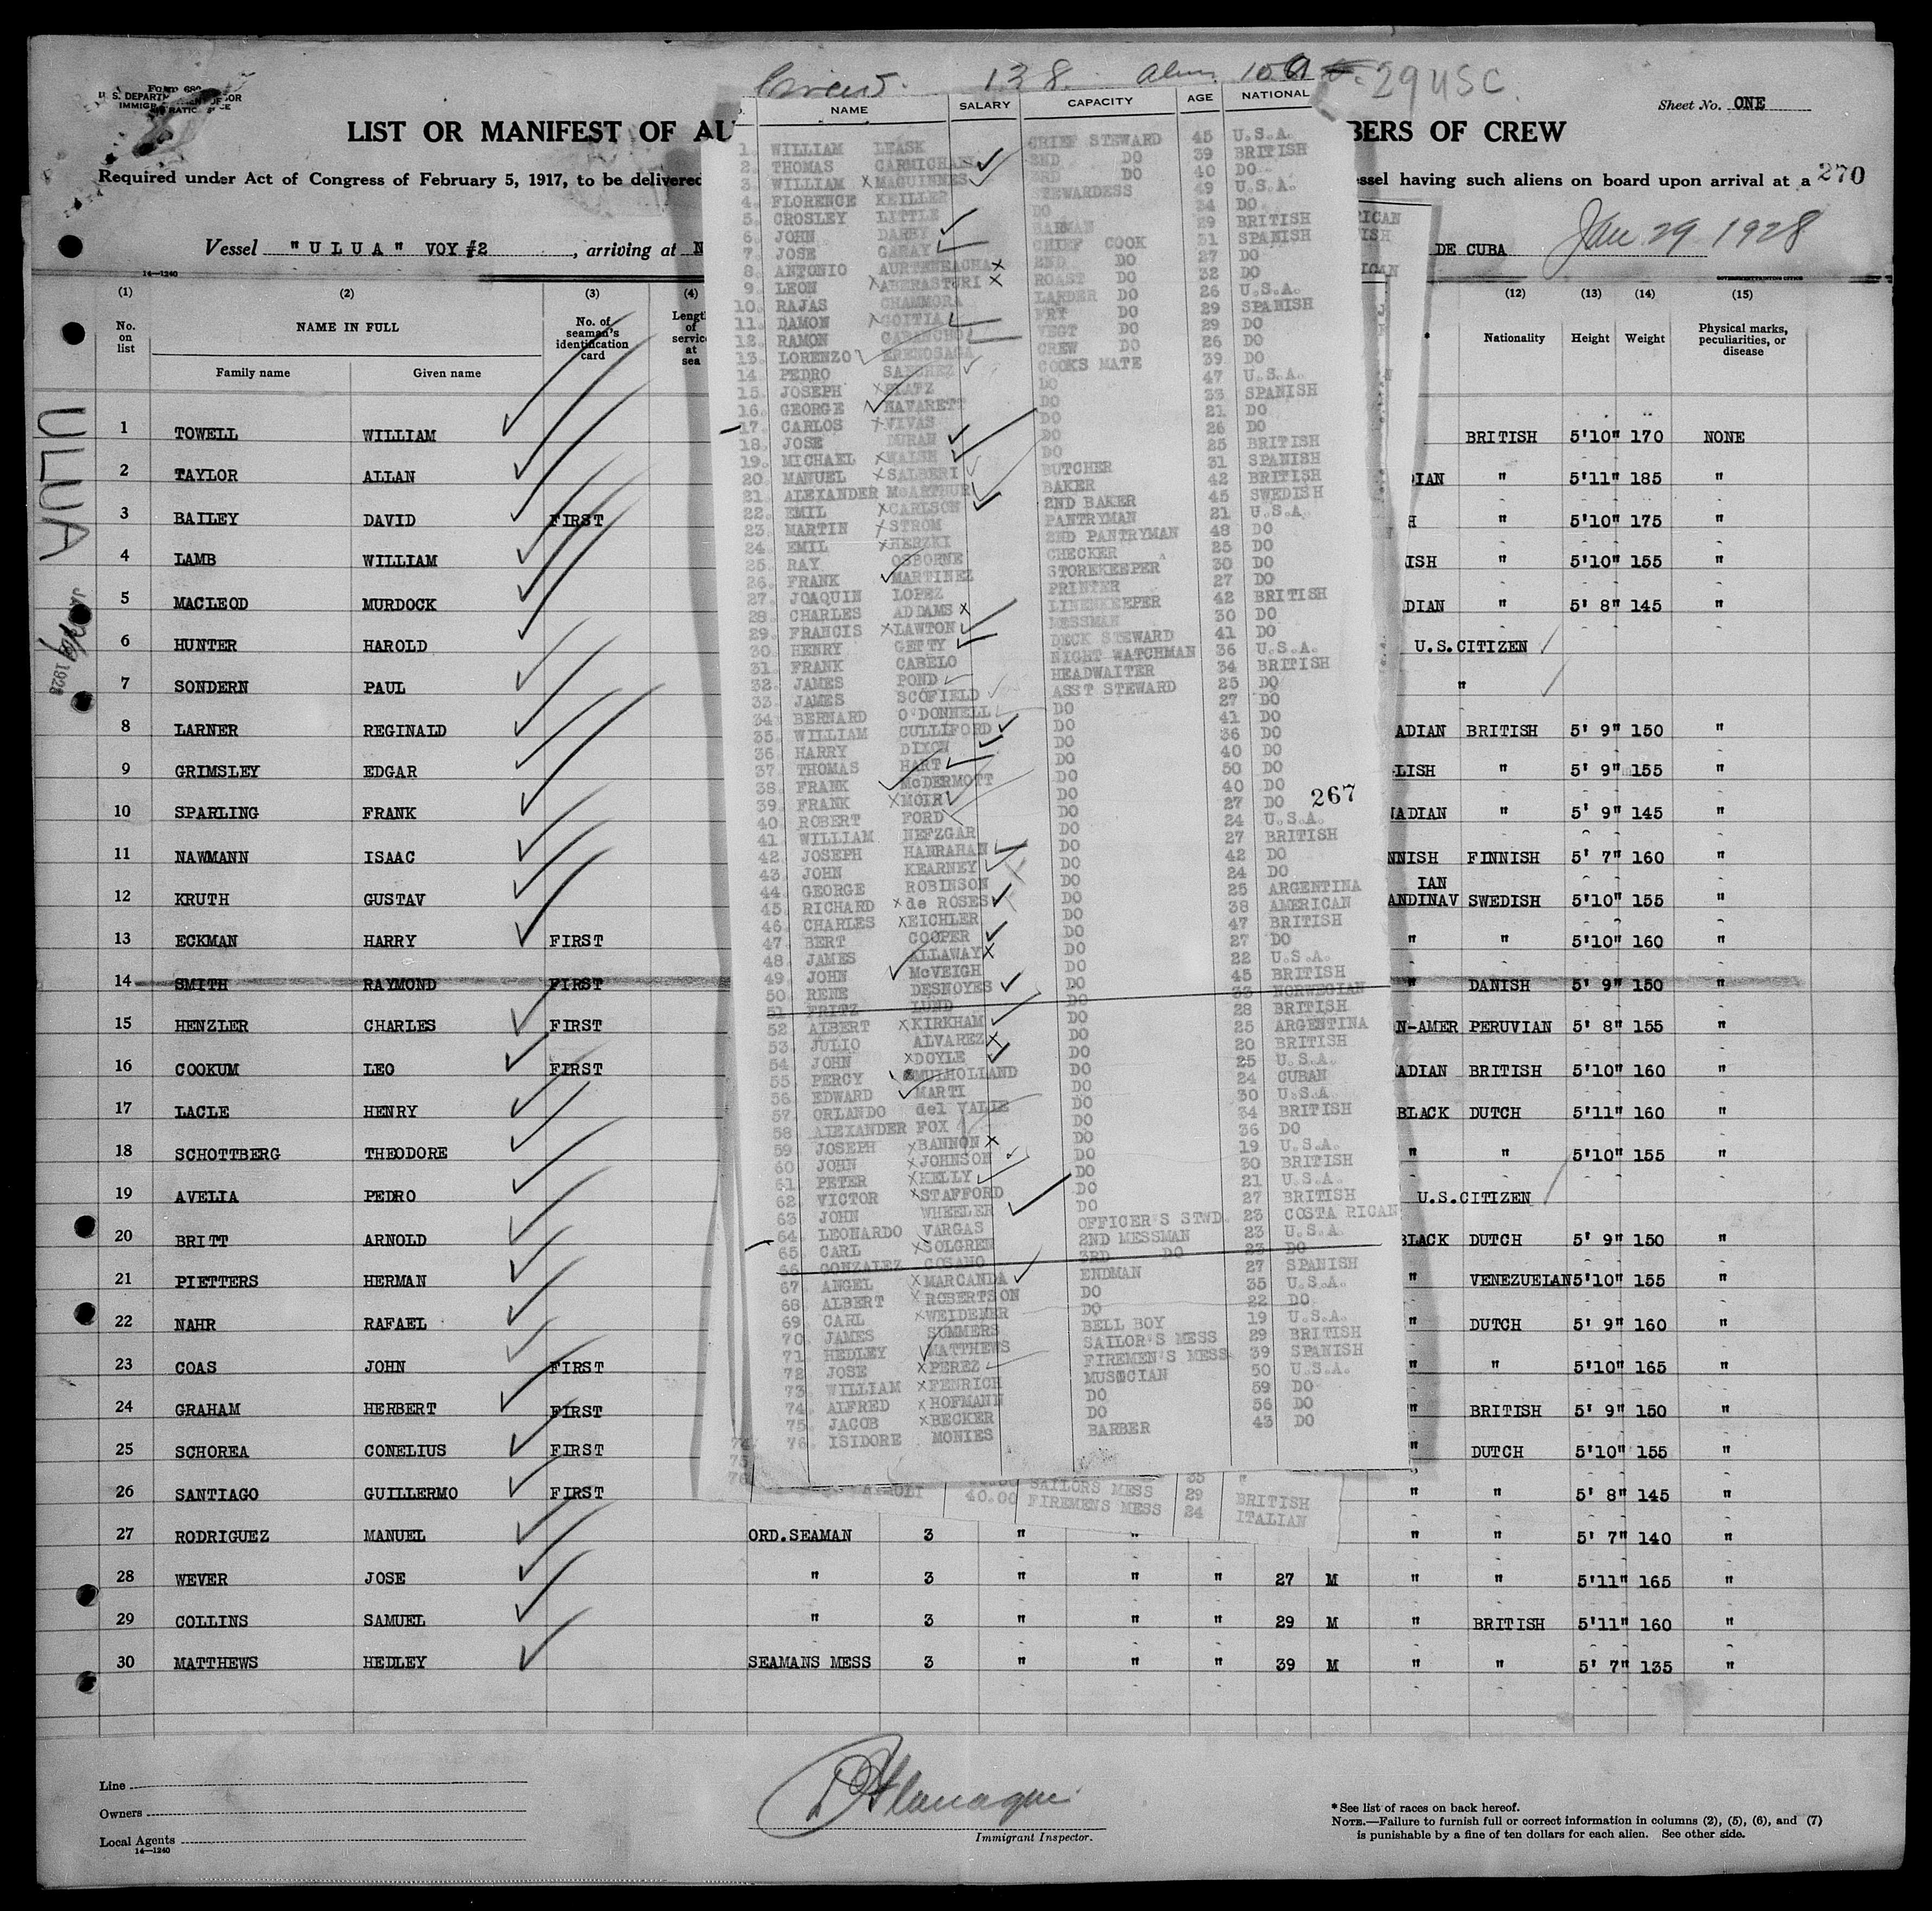 Form 680
U. S. DEPARTMENT OF LABOR
IMMIGRATION SERVICE
Crew 138 Alien 109 29 USC
Sheet No. ONE
LIST OR MANIFEST OF AL
BERS OF CREW
Required under Act of Congress of February 5, 1917, to be delivered
ssel having such aliens on board upon arrival at a 270
Vessel "ULUA" VOY #2, arriving at N
DE CUBA Jan 29 1928
14—1240
GOVERNMENT PRINTING OFFICE
(1) (2) (3) (4) (12) (13) (14) (15)
No. on list NAME IN FULL Family name Given name No. of seaman's identification card Length of service at sea
Nationality Height Weight Physical marks, peculiarities, or disease
ULUA
1928
1 TOWELL WILLIAM BRITISH 5'10" 170 NONE
2 TAYLOR ALLAN DIAN " 5'11" 185 "
3 BAILEY DAVID FIRST H " 5'10" 175 "
4 LAMB WILLIAM ISH " 5'10" 155 "
5 MACLEOD MURDOCK DIAN " 5' 8" 145 "
6 HUNTER HAROLD U.S.CITIZEN
7 SONDERN PAUL "
8 LARNER REGINALD ADIAN BRITISH 5' 9" 150 "
9 GRIMSLEY EDGAR LISH " 5' 9" 155 "
10 SPARLING FRANK NADIAN " 5' 9" 145 "
11 NAWMANN ISAAC NNISH FINNISH 5' 7" 160 "
12 KRUTH GUSTAV IAN ANDINAV SWEDISH 5'10" 155 "
13 ECKMAN HARRY FIRST " " 5'10" 160 "
14 SMITH RAYMOND FIRST " DANISH 5' 9" 150 "
15 HENZLER CHARLES FIRST N-AMER PERUVIAN 5' 8" 155 "
16 COOKUM LEO FIRST ADIAN BRITISH 5'10" 160 "
17 LACLE HENRY BLACK DUTCH 5'11" 160 "
18 SCHOTTBERG THEODORE " " 5'10" 155 "
19 AVELIA PEDRO U.S.CITIZEN
20 BRITT ARNOLD BLACK DUTCH 5' 9" 150 "
21 PIETTERS HERMAN " VENEZUELAN 5'10" 155 "
22 NAHR RAFAEL " DUTCH 5' 9" 160 "
23 COAS JOHN FIRST " " 5'10" 165 "
24 GRAHAM HERBERT FIRST " BRITISH 5' 9" 150 "
25 SCHOREA CONELIUS FIRST " DUTCH 5'10" 155 "
26 SANTIAGO GUILLERMO FIRST " " 5' 8" 145 "
27 RODRIGUEZ MANUEL ORD.SEAMAN 3 " " " " 5' 7" 140 "
28 WEVER JOSE " 3 " " " 27 M " " 5'11" 165 "
29 COLLINS SAMUEL " 3 " " " 29 M " BRITISH 5'11" 160 "
30 MATTHEWS HEDLEY SEAMANS MESS 3 " " " 39 M " " 5' 7" 135 "
NAME SALARY CAPACITY AGE NATIONAL
1. WILLIAM LEASK CHIEF STEWARD 45 U.S.A.
2. THOMAS CARMICHAEL 2ND DO 39 BRITISH
3. WILLIAM MAGUINNES 3RD DO 40 DO
4. FLORENCE KEILLER STEWARDESS 49 U.S.A.
5. CROSLEY LITTLE DO 34 DO
6. JOHN DARBY BARMAN 29 BRITISH
7. JOSE GARAY CHIEF COOK 31 SPANISH
8. ANTONIO AURTENEACHA 2ND DO 27 DO
9. LEON ABERASTURI ROAST DO 32 DO
10. RAJAS CHAMMORA LARDER DO 26 U.S.A.
11. DAMON GOITIA FRY DO 29 SPANISH
12. RAMON CABANCHO VEGT DO 29 DO
13. LORENZO ERENOSAGA CREW DO 26 DO
14. PEDRO SANCHEZ COOKS MATE 39 DO
15. JOSEPH PLATZ DO 47 U.S.A.
16. GEORGE NAVARETT DO 33 SPANISH
17. CARLOS VIVAS DO 21 DO
18. JOSE DURAN DO 26 DO
19. MICHAEL WALSH DO 25 BRITISH
20. MANUEL SALBERI BUTCHER 31 SPANISH
21. ALEXANDER McARTHUR BAKER 42 BRITISH
22. EMIL CARLSON 2ND BAKER 45 SWEDISH
23. MARTIN STROM PANTRYMAN 21 U.S.A.
24. EMIL HERZKI 2ND PANTRYMAN 48 DO
25. RAY OSBORNE CHECKER 25 DO
26. FRANK MARTINEZ STOREKEEPER 30 DO
27. JOAQUIN LOPEZ PRINTER 27 DO
28. CHARLES ADDAMS LINENKEEPER 42 BRITISH
29. FRANCIS LAWTON MESSMAN 30 DO
30. HENRY GETTY DECK STEWARD 41 DO
31. FRANK CABELO NIGHT WATCHMAN 36 U.S.A.
32. JAMES POND HEADWAITER 34 BRITISH
33. JAMES SCOFIELD ASST STEWARD 25 DO
34. BERNARD O'DONNELL DO 27 DO
35. WILLIAM CULLIFORD DO 41 DO
36. HARRY DIXON DO 36 DO
37. THOMAS HART DO 40 DO
38. FRANK McDERMOTT DO 50 DO
39. FRANK MOIR DO 40 DO
40. ROBERT FORD DO 27 DO 267
41. WILLIAM NEFZGAR DO 24 U.S.A.
42. JOSEPH HANRAHAN DO 27 BRITISH
43. JOHN KEARNEY DO 42 DO
44. GEORGE ROBINSON DO 24 DO
45. RICHARD de ROSES DO 25 ARGENTINA
46. CHARLES EICHLER DO 38 AMERICAN
47. BERT COOPER DO 47 BRITISH
48. JAMES ALLAWAY DO 27 DO
49. JOHN McVEIGH DO 22 U.S.A.
50. RENE DESNOYES DO 45 BRITISH
51 FRITZ LUND DO 33 NORWEGIAN
52 ALBERT KIRKHAM DO 28 BRITISH
53. JULIO ALVAREZ DO 25 ARGENTINA
54. JOHN DOYLE DO 20 BRITISH
55. PERCY MULHOLLAND DO 25 U.S.A.
56. EDWARD MARTI DO 24 CUBAN
57. ORLANDO del VALLE DO 30 U.S.A
58. ALEXANDER FOX DO 34 BRITISH
59. JOSEPH BANNON DO 36 DO
60. JOHN JOHNSON DO 19 U.S.A.
61. PETER KELLY DO 30 BRITISH
62. VICTOR STAFFORD DO 21 U.S.A.
63. JOHN WHEELER DO 27 BRITISH
64. LEONARDO VARGAS OFFICER'S STWD. 23 COSTA RICAN
65. CARL SOLGREN 2ND MESSMAN 23 U.S.A.
66 GONZALEZ COSANO 3RD DO 23 DO
67. ANGEL MARCANDA ENDMAN 27 SPANISH
68. ALBERT ROBERTSON DO 35 U.S.A.
69. CARL WEIDEMER DO 22 DO
70. JAMES SUMMERS BELL BOY 19 U.S.A.
71. HEDLEY MATTHEWS SAILOR'S MESS 29 BRITISH
72 JOSE PEREZ FIREMEN'S MESS 39 SPANISH
73. WILLIAM FENRICH MUSICIAN 50 U.S.A.
74. ALFRED HOFMANN DO 59 DO
75. JACOB BECKER DO 56 DO
76. ISIDORE MONIES BARBER 43 DO
74.
75
76
SAILORS MESS 35 "
40.00 FIREMENS MESS 29 BRITISH
24 ITALIAN
Line
Owners
Local Agents
14—1240
Immigrant Inspector.
*See list of races on back hereof.
NOTE.—Failure to furnish full or correct information in columns (2), (5), (6), and (7)
is punishable by a fine of ten dollars for each alien. See other side.